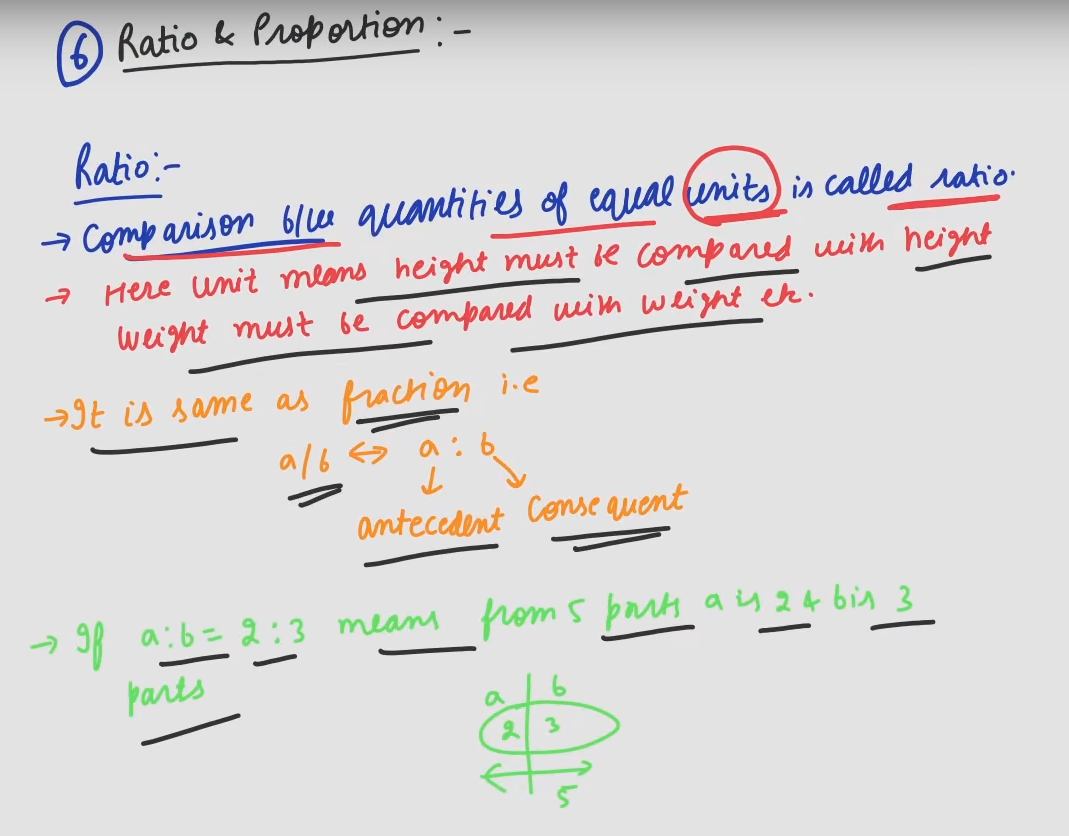 6 Ratio & Proportion :-
Ratio:-
→ Comparison b/w quantities of equal units is called ratio.
→ Here unit means height must be compared with height
weight must be compared with weight etc.
→ It is same as fraction i.e
a/b ↔ a : b
antecedent Consequent
→ If a:b = 2:3 means from 5 parts a is 2 & b is 3
parts
a b
2 3
5